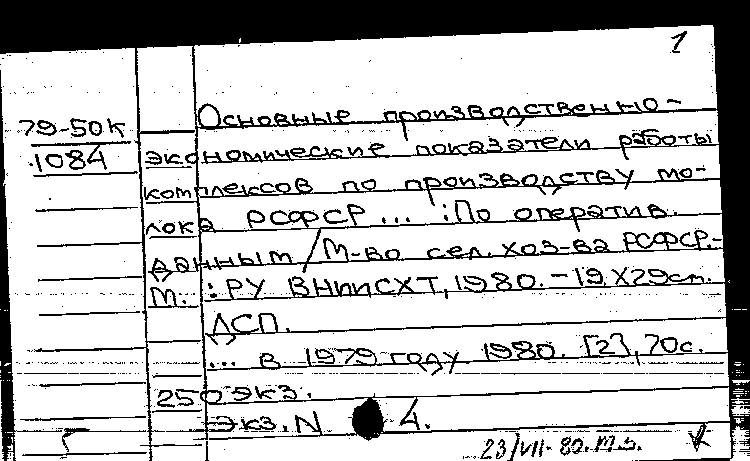 1
79-50К
1084
Основные производственно-
экономические показатели работы
комплексов по производству мо-
лока РСФСР ... :По оператив.
данным / М-во сел. хоз-ва РСФСР.-
М. : РУ ВНИИСХТ, 1980. - 19 х 29 см.
ДСП.
... в 1979 году 1980. [2], 70 с.
250 экз.
Экз. N 4.
23/VII-80.